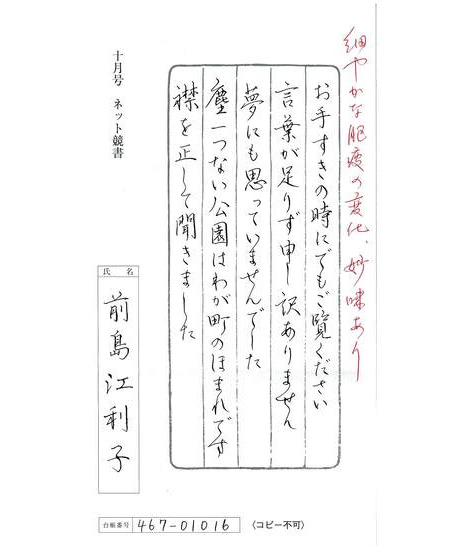 細やかな肥痩の変化、妙味あり
お手すきの時にでもご覧ください
言葉が足りず申し訳ありません
夢にも思っていませんでした
塵一つない公園はわが町のほまれです
襟を正して聞きました
十月号 ネット競書
氏名
前島江利子
台帳番号 467-01016
〈コピー不可〉